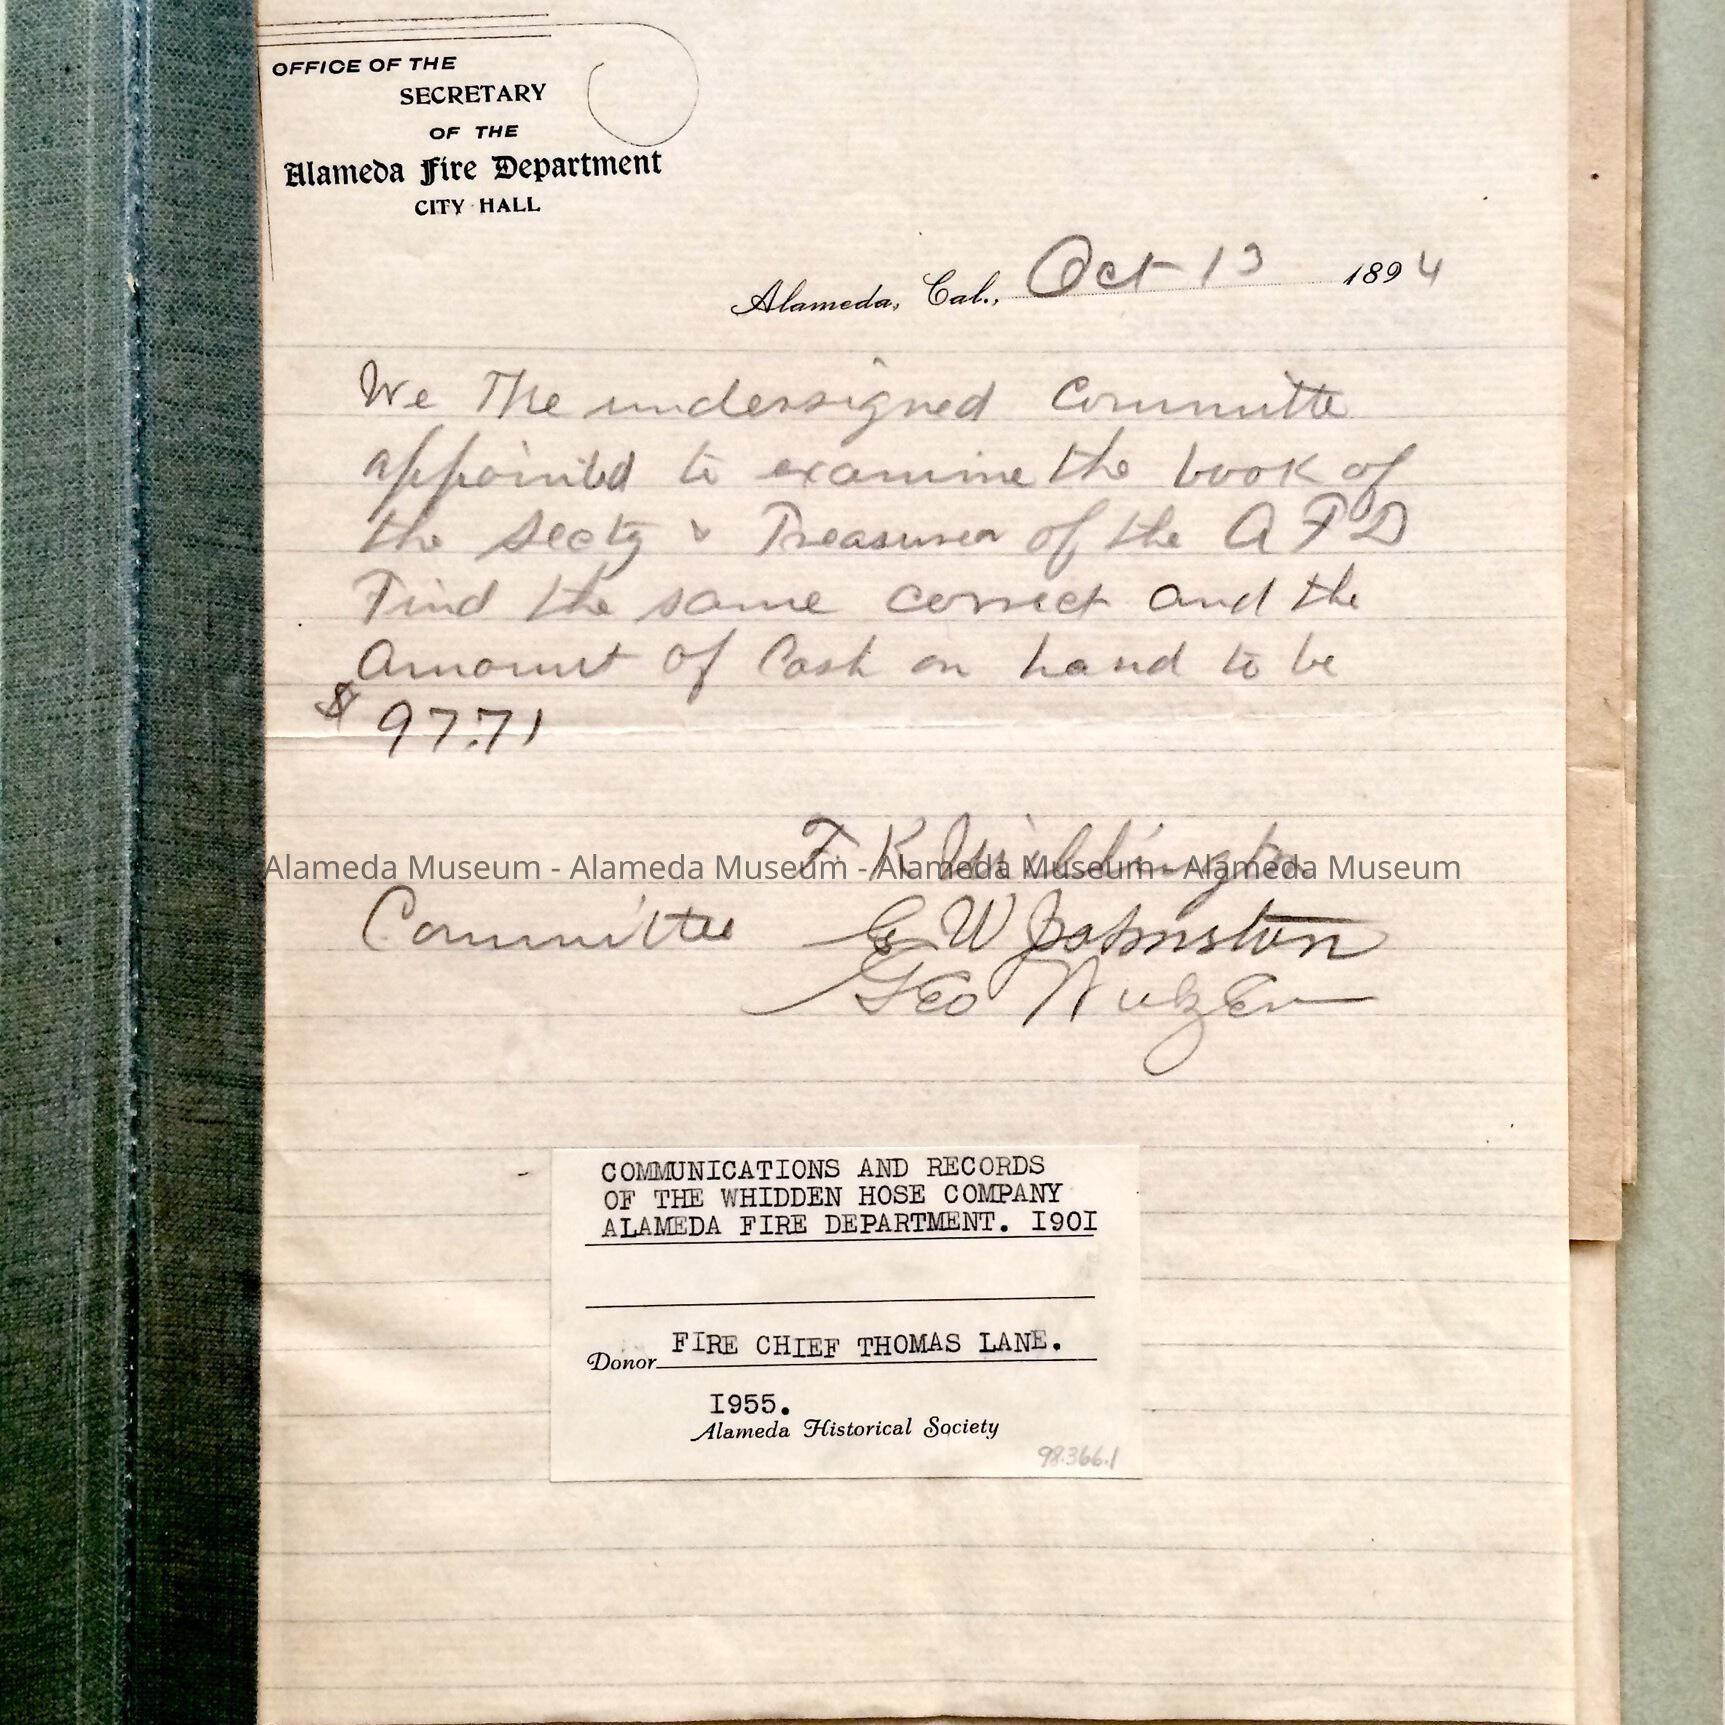 OFFICE OF THE
SECRETARY
OF THE
Alameda Fire Department
CITY HALL
Alameda, Cal., Oct 13 1894
We The undersigned Committe
appointed to examine the book of
the Secty & Treasurer of the A F D
Find the same correct and the
Amount of Cash on hand to be
$ 97.71
F. K.
Alameda Museum - Alameda Museum - Alameda Museum - Alameda Museum
Committee G W Johnston
Geo
COMMUNICATIONS AND RECORDS
OF THE WHIDDEN HOSE COMPANY
ALAMEDA FIRE DEPARTMENT. I90I
Donor FIRE CHIEF THOMAS LANE.
I955.
Alameda Historical Society
98.366.1